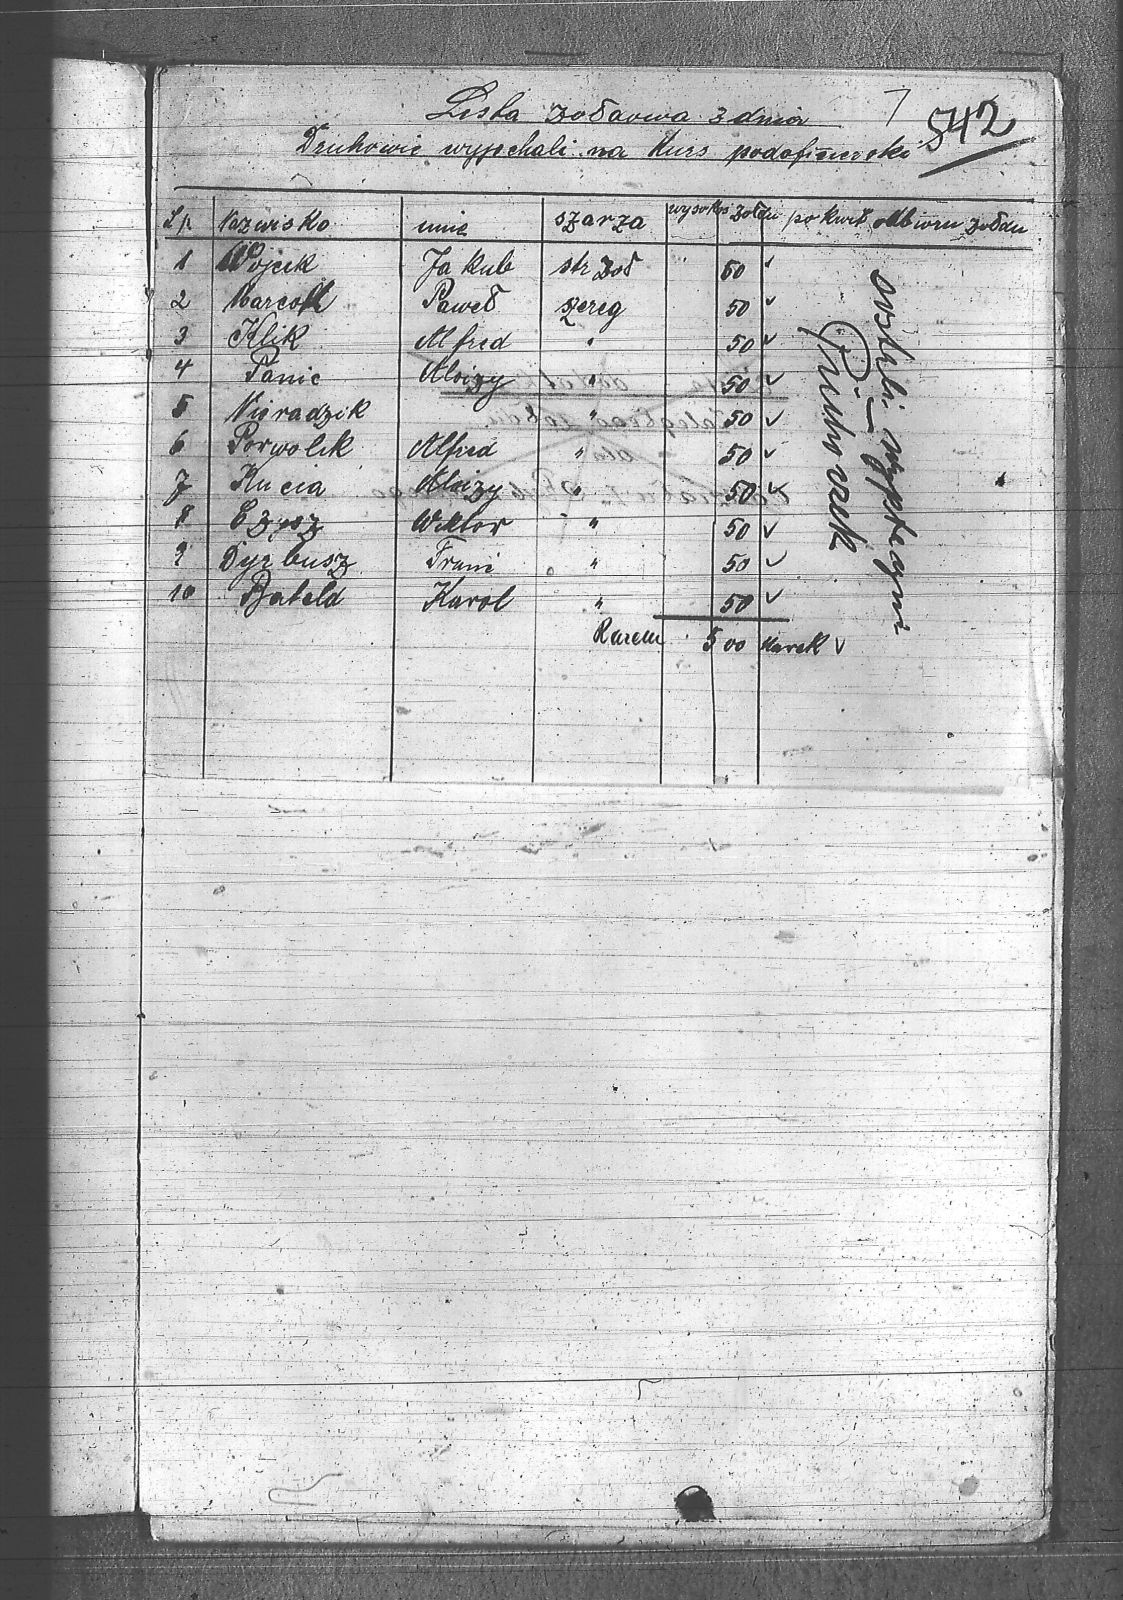 Lista żołdowa z dnia 7 542
Druhowie wyjechali na Kurs podoficerski
L.p. Nazwisko imie szarża wysokoś żołdu pokwit odbioru żołdu
1 Wójcik Jakub strzoł 50 ✓
2 Marcoll Paweł szereg 50 ✓
3 Klik Alfred " 50 ✓
4 Panic Aloizy " 50 ✓
5 Nieradzik " 50 ✓
6 Porwolik Alfred " 50 ✓
7 Kucia Aloizy " 50 ✓
8 Czysz Wiktor " 50 ✓
9 Dyrbusz Franc " 50 ✓
10 Bateld Karol " 50 ✓
Razem 500 Marek ✓
zostali wypłaceni